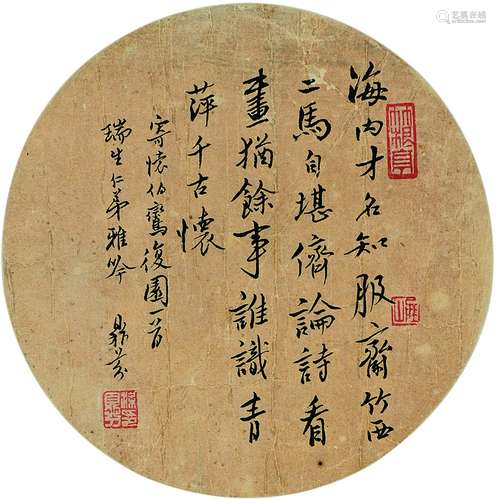 海内才名知服齋竹西
二馬自堪儕論詩看
畫猶餘事誰識青
萍千古懷
寄懷伯鸞復園一首
瑞生仁弟雅吟
鼎芬